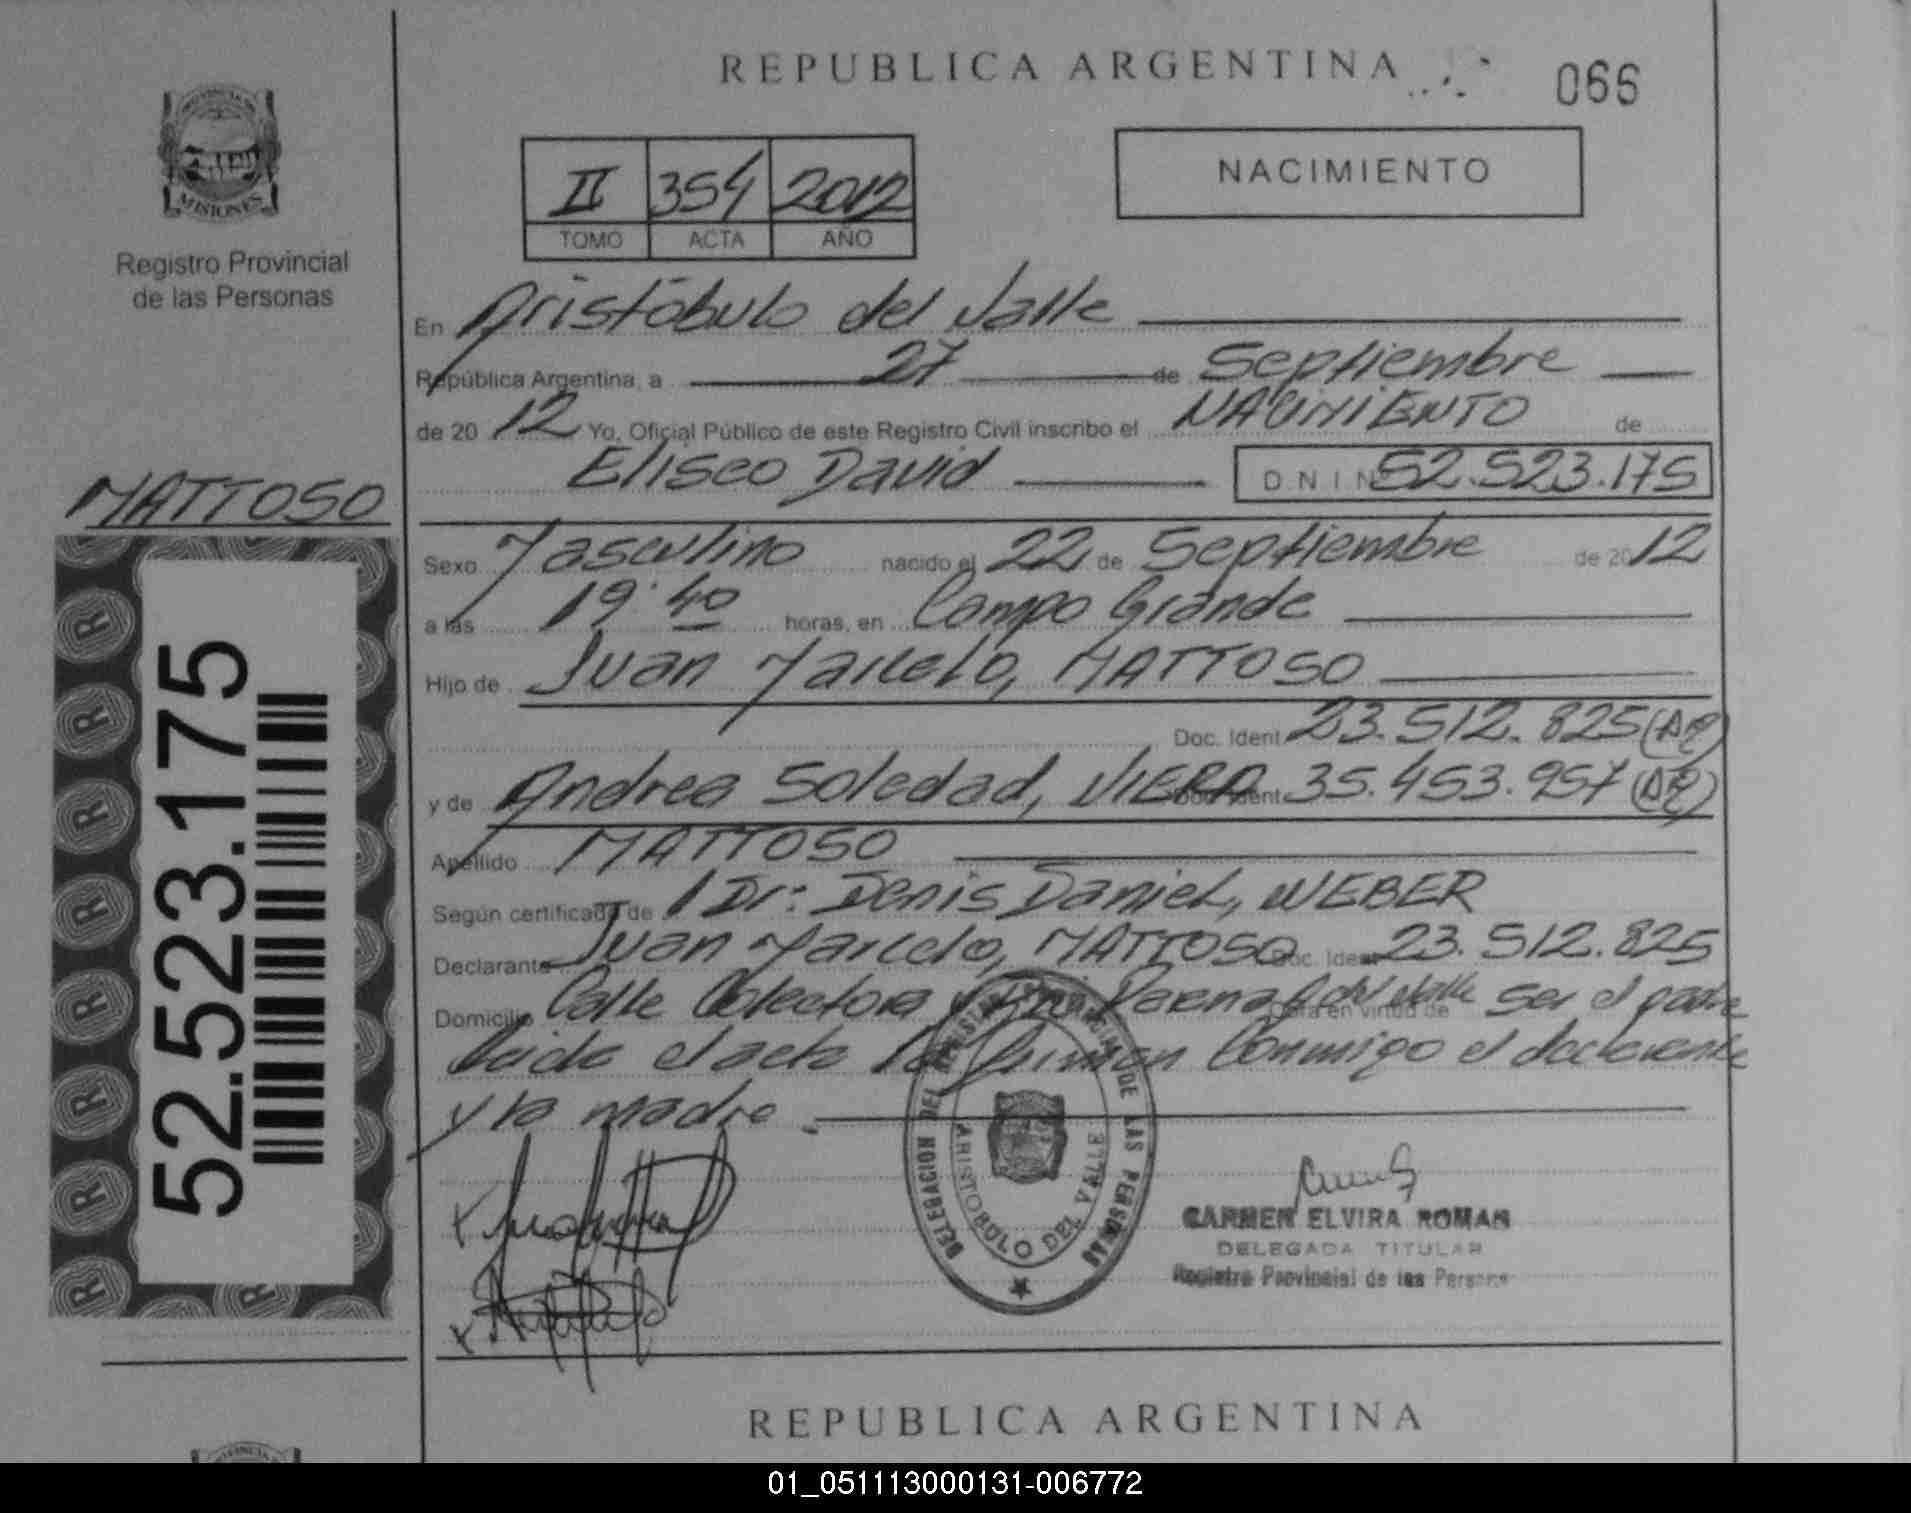 REPUBLICA ARGENTINA
066
PROVINCIA DE
MISIONES
Registro Provincial
de las Personas
II 354 2012
TOMO ACTA AÑO
NACIMIENTO
En Aristóbulo del Valle
República Argentina, a 27 de Septiembre
de 20 12 Yo, Oficial Público de este Registro Civil inscribo el NACIMIENTO de
Eliseo David D N I N 52.523.175
MATTOSO
52.523.175
Sexo Masculino nacido el 22 de Septiembre de 20 12
a las 19:40 horas, en Campo Grande
Hijo de Juan Marcelo, MATTOSO
Doc. Ident 23.512.825 (AR)
y de Andrea Soledad, VIERA Doc. Ident 35.453.957 (AR)
Apellido MATTOSO
Según certificado de Dr: Denis Daniel, WEBER
Declarante Juan Marcelo, MATTOSO Doc. Ident 23.512.825
Domicilio Calle Colectora del Valle Obra en virtud de ser el padre
Leida el acta la firman Conmigo el declarante
y la madre
DELEGACION DEL REGISTRO PROVINCIAL DE LAS PERSONAS
ARISTOBULO DEL VALLE
CARMEN ELVIRA ROMAN
DELEGADA TITULAR
Registro Provincial de las Personas
REPUBLICA ARGENTINA
01_051113000131-006772